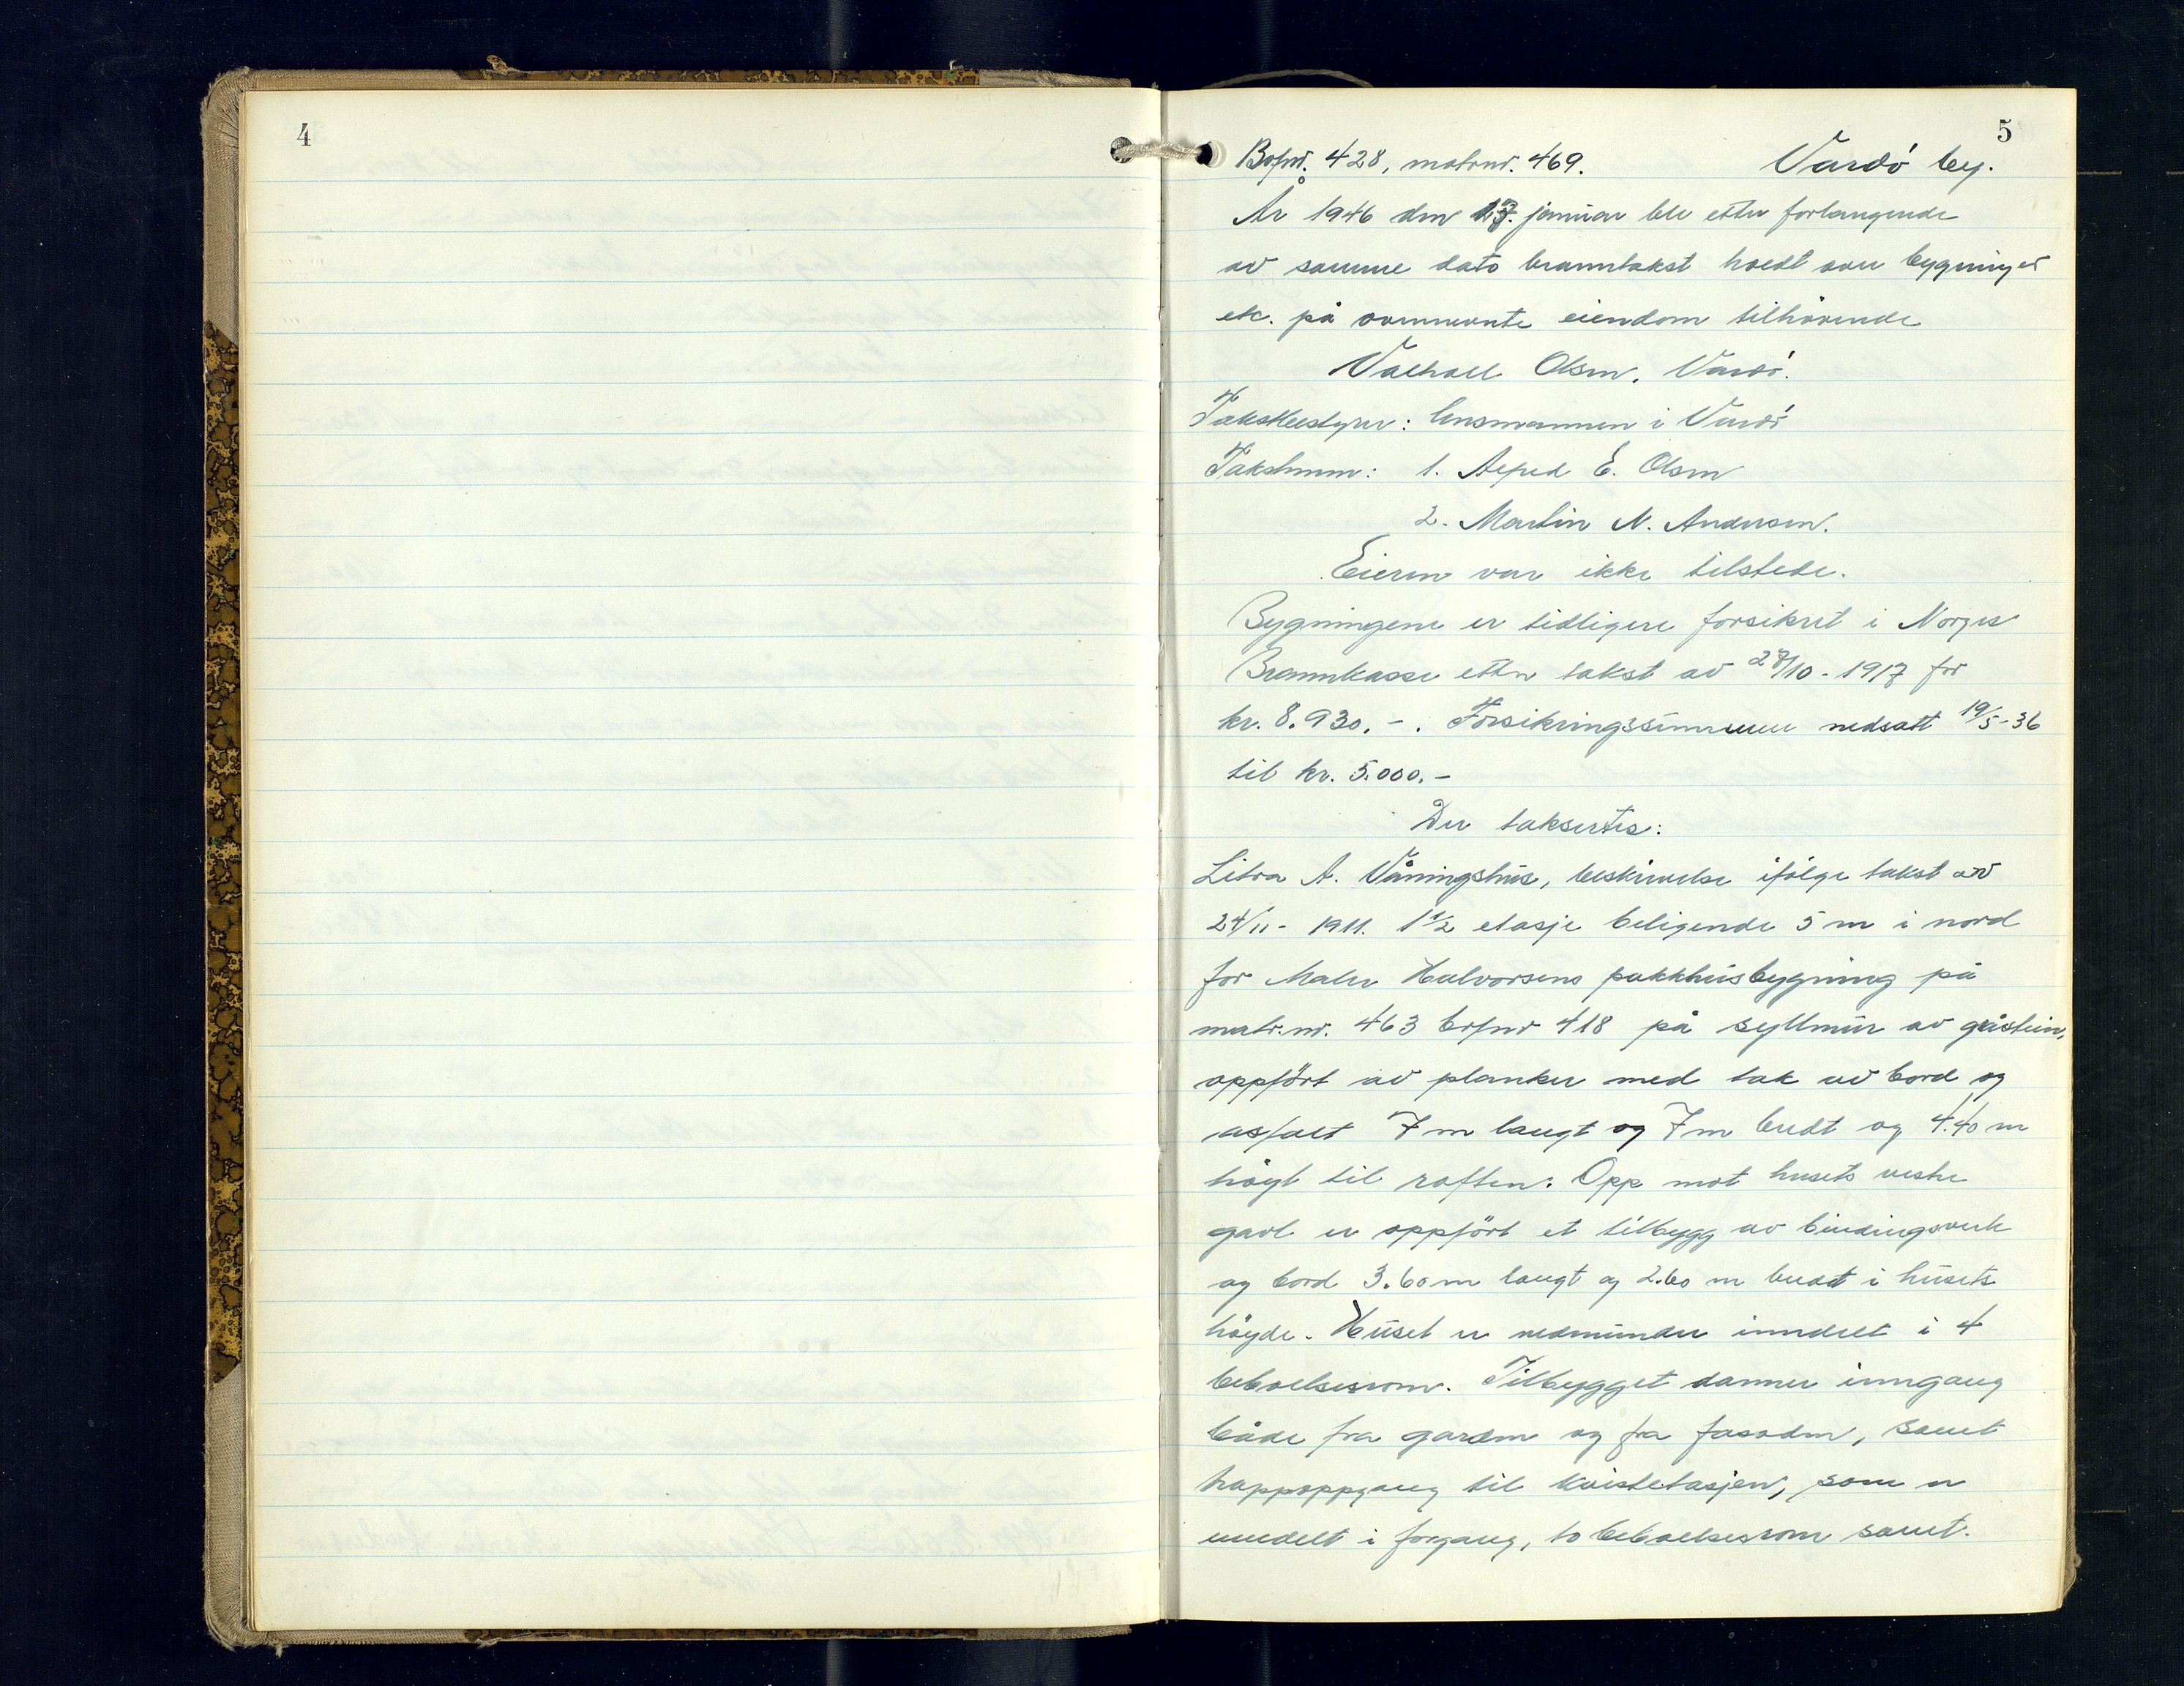 4
5
Bofnr. 428, matrnr. 469. Vardö by.
År 1946 den 17. januar ble etter forlangende
av samme dato branntakst holdt over bygninger
etc. på ovennevnte eiendom tilhörende
Valhall Olsen, Vardö.
Takstbestyrer: lensmannen i Vardö
Takstmenn: 1. Alfred E. Olsen
2. Martin N. Andersen.
Eieren var ikke tilstede.
Bygningene er tidligere forsikret i Norges
Brannkasse etter takst av 27/10-1917 for
kr. 8.930.-. Forsikringssummen nedsatt 19/5-36
til kr. 5.000.-
Der taksertes:
Litra A. Våningshus, beskrivelse ifölge takst av
24/11- 1911. 1 1/2 etasje beligende 5 m i nord
for Maler Halvorsens pakkhusbygning på
matr.nr. 463 bofnr 418 på syllmur av gråstein,
oppfört av planker med tak av bord og
asfalt 7 m langt og 7 m bredt og 4.40 m
höyt til raften. Opp mot husets vestre
gavl er oppfört et tilbygg av bindingsverk
og bord 3.60 m langt og 2.60 m bredt i husets
höyde. Huset er nedenunder inndelt i 4
beboelsesrom. Tilbygget danner inngang
både fra garden og fra fasaden, samt
trappoppgang til kvistetasjen, som er
inndelt i forgang, to beboelsesrom samt.